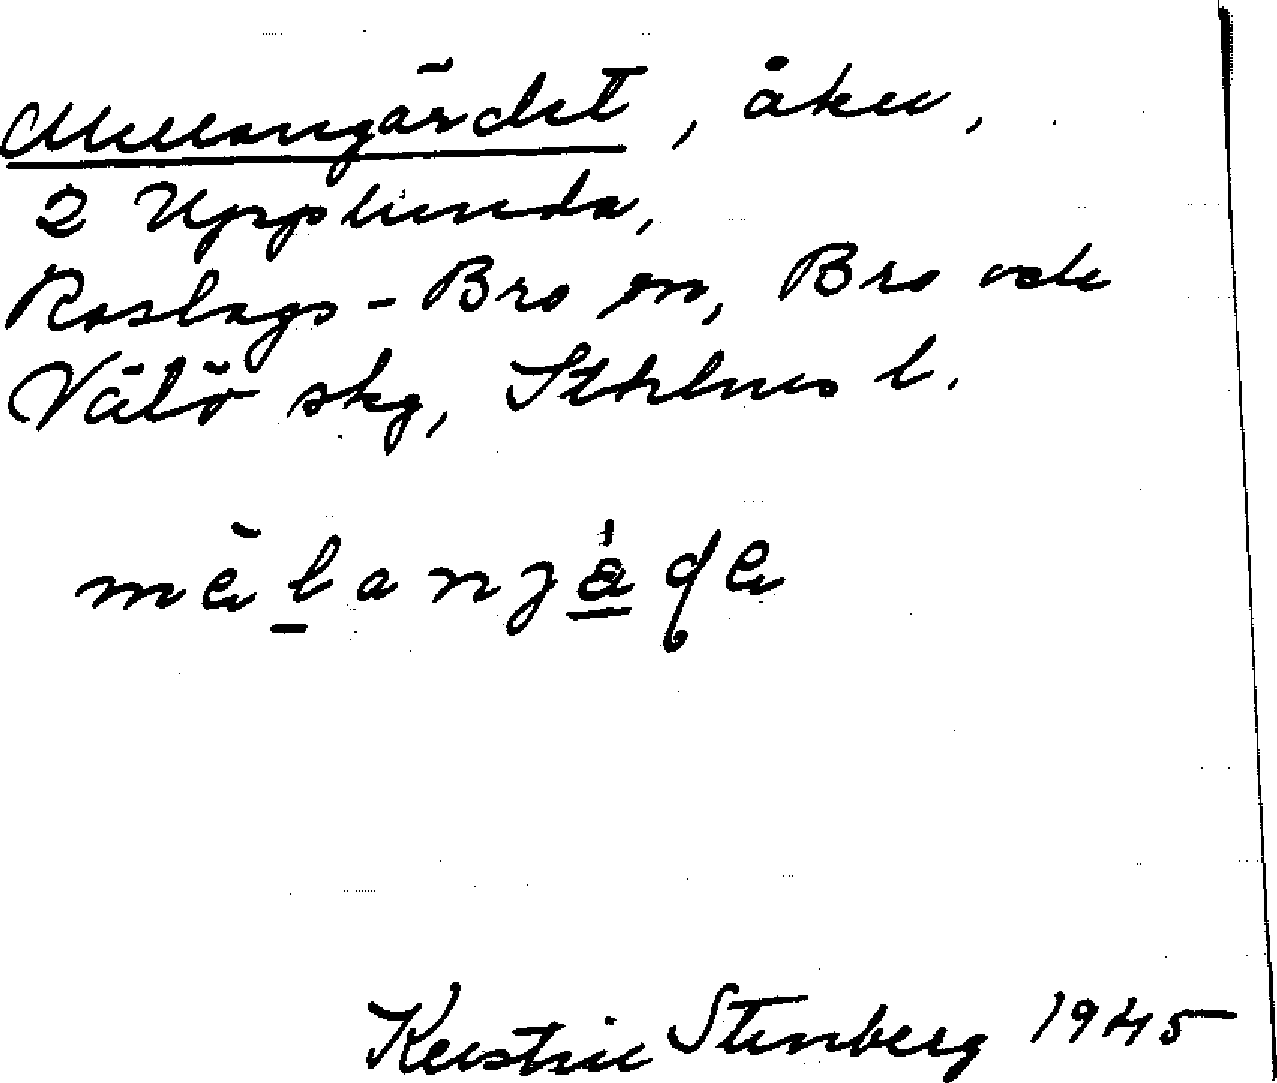 Mellangärdet, åker,
2 Upplunda,
Roslags-Bro sn, Bro och
Vätö skg, Sthlms l.
Kerstin Stenberg 1945